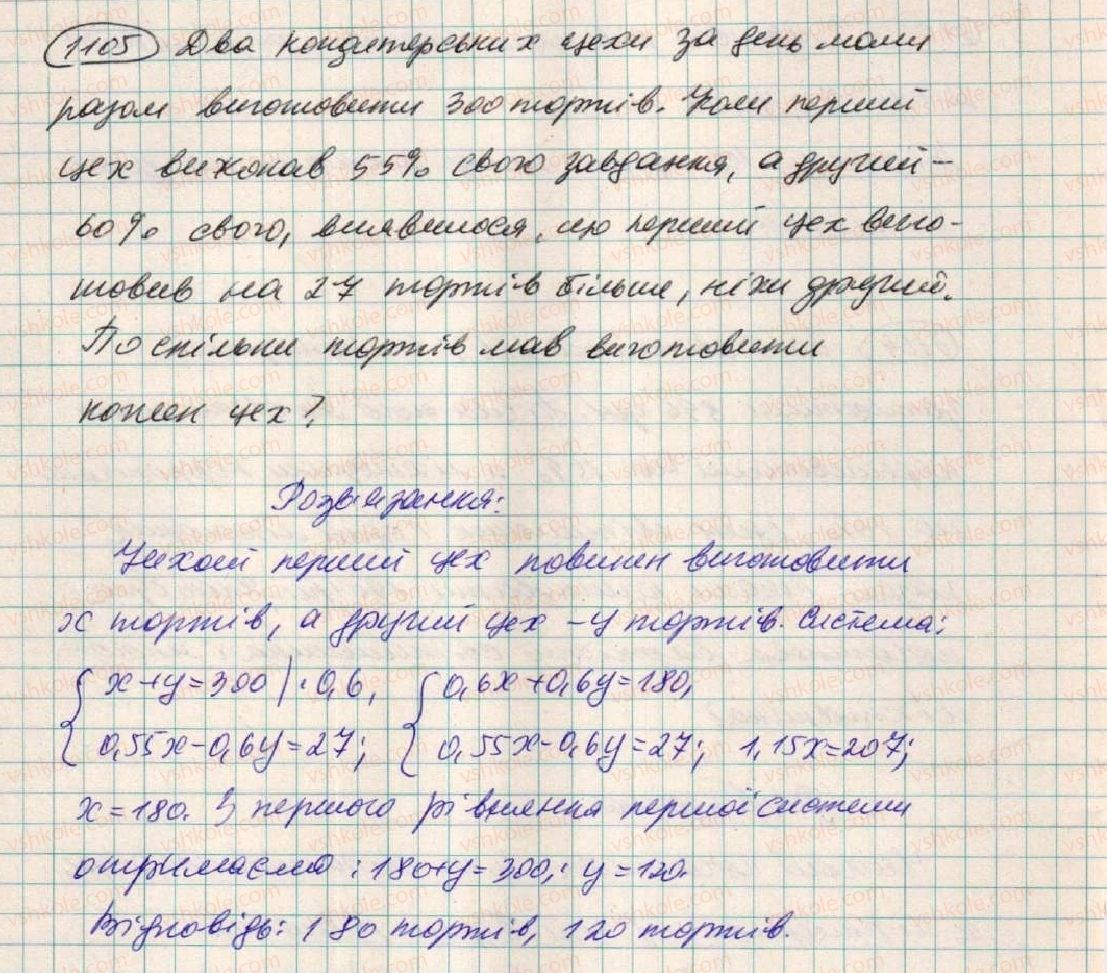 1105 Два кондитерських цехи за день мали
разом виготовити 300 тортів. Коли перший
цех виконав 55% свого завдання, а другий –
60% свого, виявилося, що перший цех виго-
товив на 27 тортів більше, ніж другий.
По скільки тортів мав виготовити
кожен цех?
Розв'язання:
Нехай перший цех повинен виготовити
x тортів, а другий цех – y тортів. Система:
{ x+y=300 |·0,6, { 0,6x+0,6y=180,
{ 0,55x-0,6y=27; { 0,55x-0,6y=27; 1,15x=207;
x=180. З першого рівняння першої системи
отримаємо: 180+y=300; y=120.
Відповідь: 180 тортів, 120 тортів.